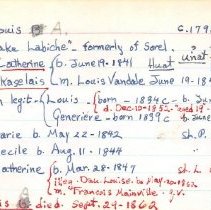 ouis A. 6.179
ake Labiche" - formerly of Sorel.
Catherine b. June 19-1841 Huat unat
kaselais m. Louis Vandale June 19-184
n legit- Louis - born - 1894c - b. Jun
d. Dec. 10-1852-
Genevieve - born 1839c b. Jun
arie b. May 22-1842 sh. P.
ecile b. Aug. 11-1844
atherine b. Mar. 28-1847 sh. L
Dau. Louise b. May
m. Francois Mainville
died Sept. 29-1862